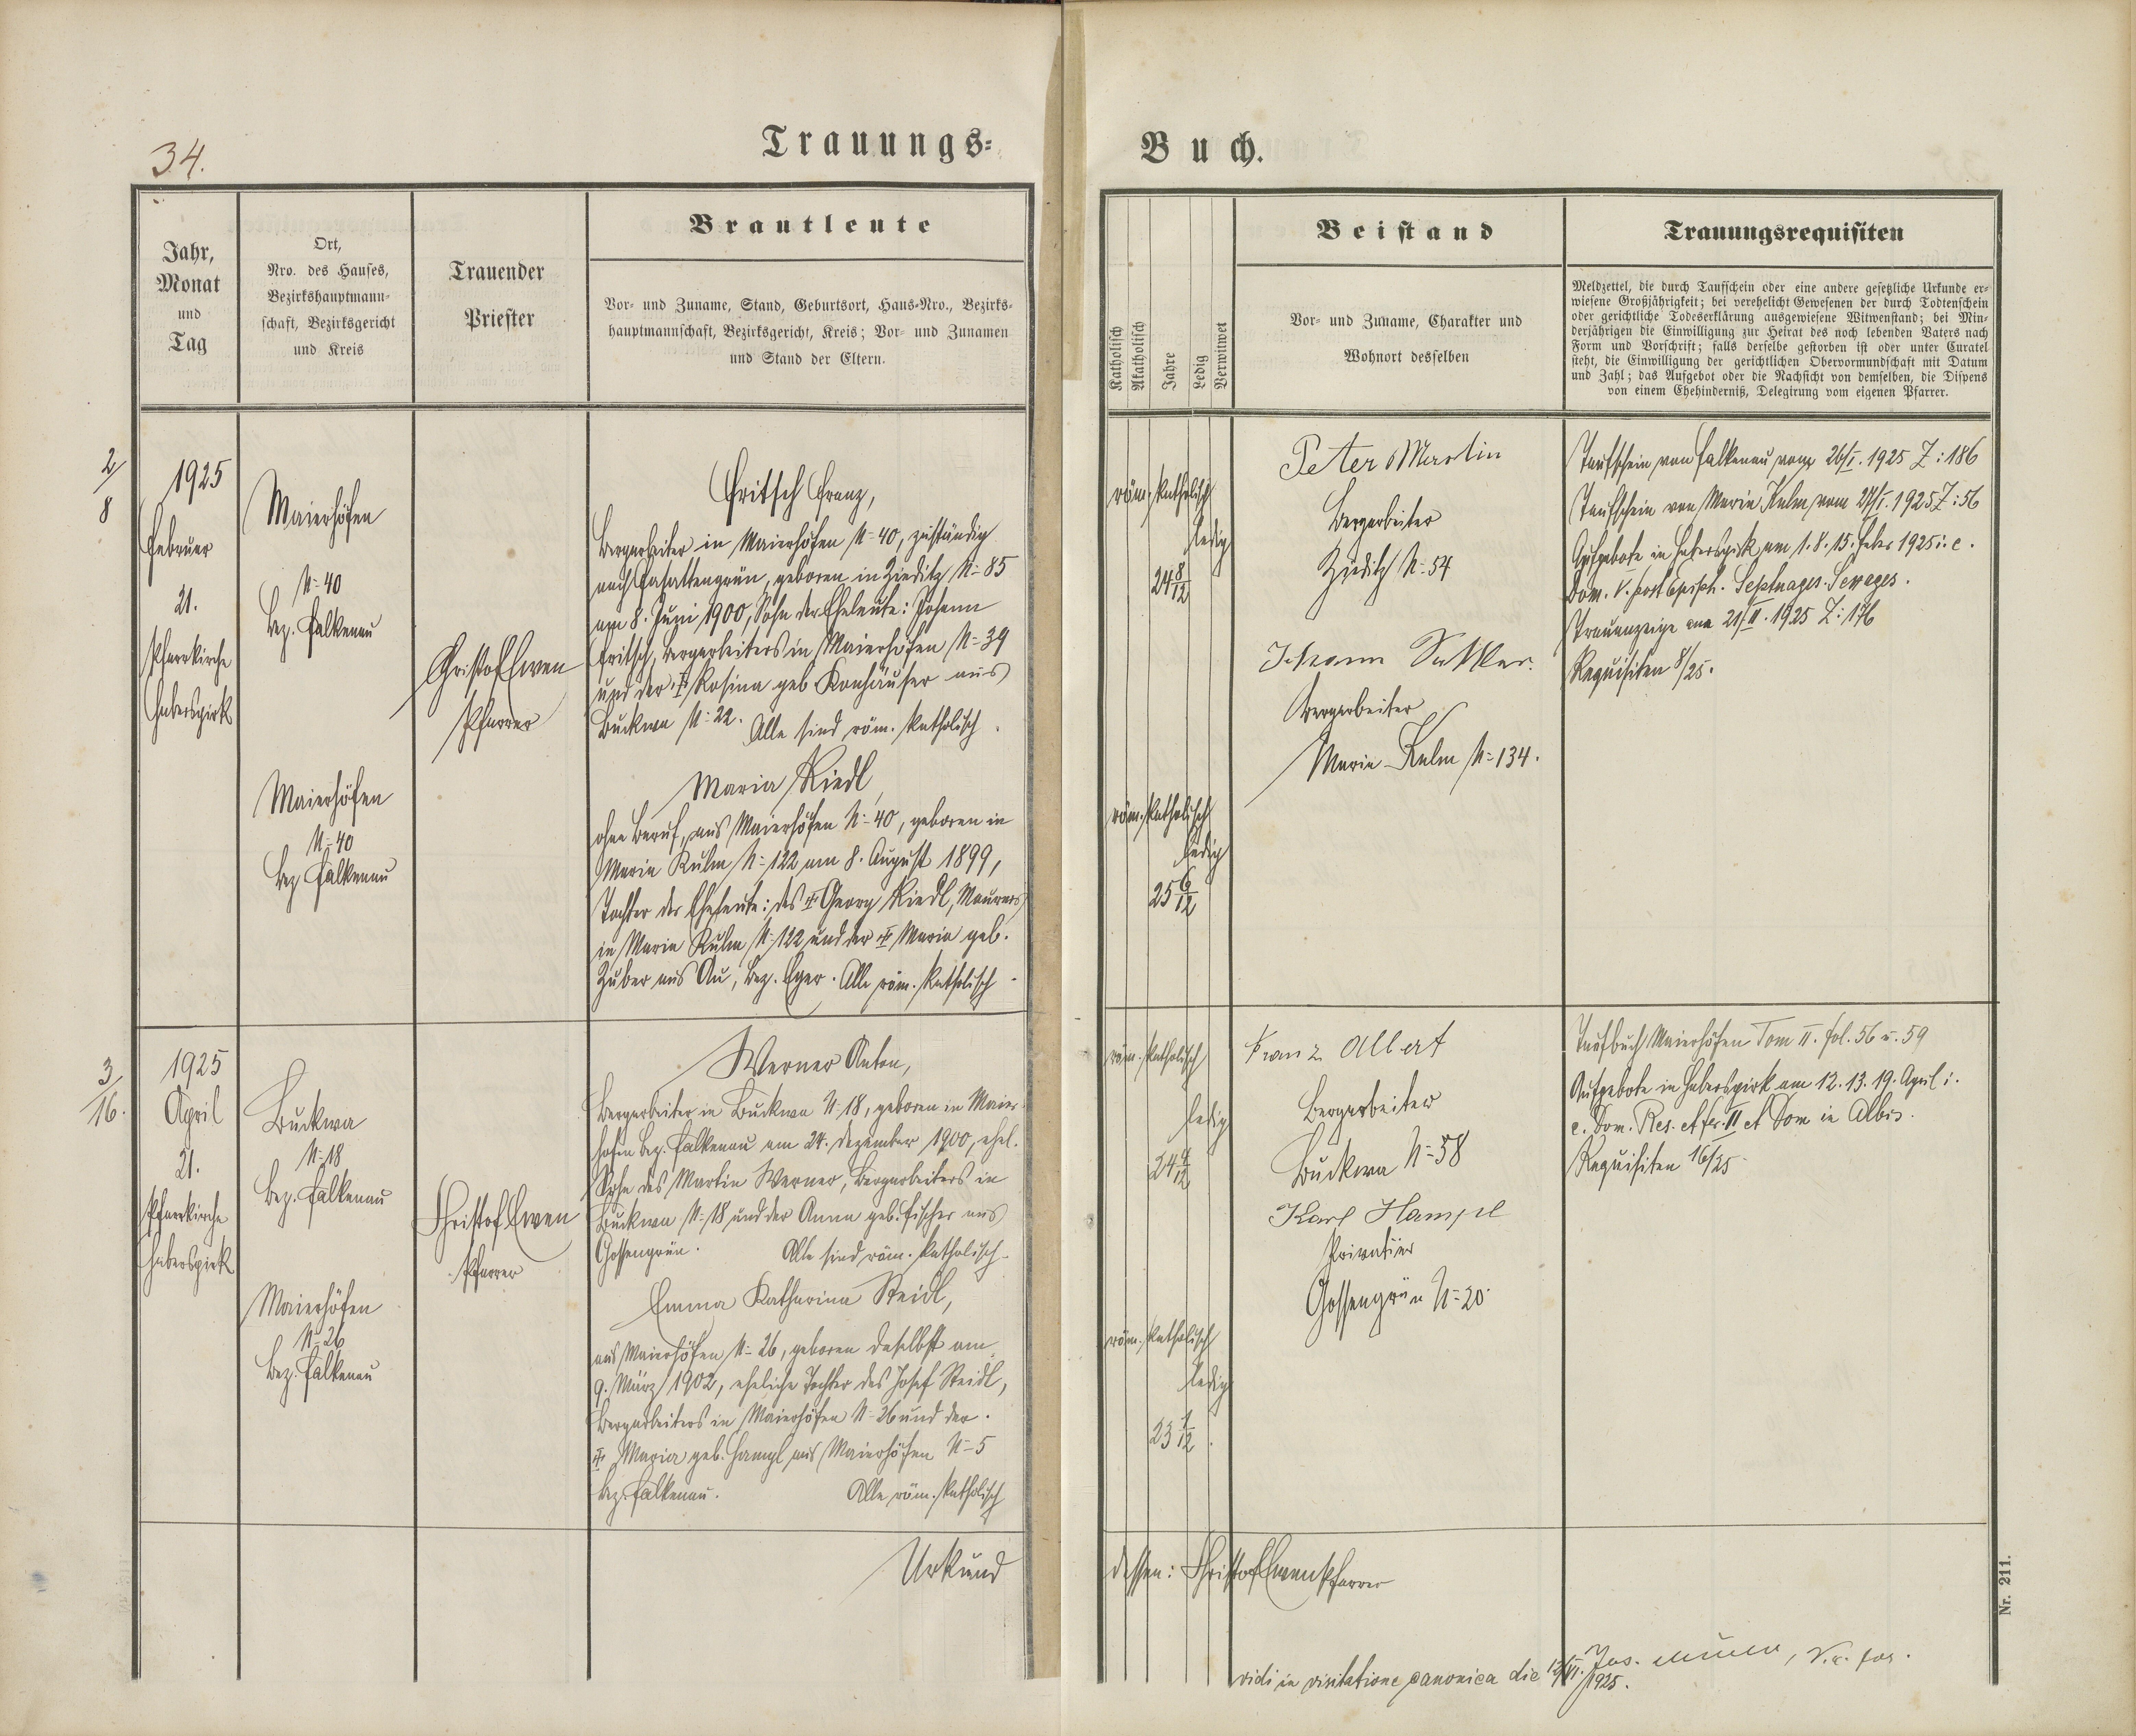 34.
Trauungs-
Jahr,
Monat
und
Tag
Ort,
Nro. des Hauses,
Bezirkshauptmann-
schaft, Bezirksgericht
und Kreis
Trauender
Priester
Brautleute
Vor- und Zuname, Stand, Geburtsort, Haus-Nro., Bezirks-
hauptmannschaft, Bezirksgericht, Kreis; Vor- und Zunamen
und Stand der Eltern.
2/8
1925
Februar
21.
Pfarrkirche
Haberspirk
Maierhöfen
N=40
Bez. Falkenau
Maierhöfen
N=40
Bez. Falkenau
Christof Ewen
Pfarrer
Fritsch Franz,
Bergarbeiter in Maierhöfen N=40, zuständig
nach geboren in Zieditz N=85
am 8. Juni 1900, Sohn der Eheleute: Johann
Fritsch, Bergarbeiters in Maierhöfen N=39
und der † Rosina geb. Konhäuser aus
Buckwa N=22. Alle sind röm. katholisch.
Maria Riedl,
ohne Beruf, aus Maierhöfen N=40, geboren in
Maria Kulm N=122 am 8. August 1899,
Tochter der Eheleute: des † Georg Riedl, Maurers
in Maria Kulm N=122 und der † Maria geb.
Zuber aus Au, Bez. Eger. Alle röm. katholisch
3/16.
1925
April
21.
Pfarrkirche
Haberspirk
Buckwa
N=18
Bez. Falkenau
Maierhöfen
N=26
Bez. Falkenau
Christof Ewen
Pfarrer
Werner Anton,
Bergarbeiter in Buckwa N=18, geboren in Maier-
höfen Bez. Falkenau am 24. Dezember 1900, ehel.
Sohn des Martin Werner, Bergarbeiters in
Buckwa N=18 und der Anna geb. Fischer aus
Gossengrün. Alle sind röm. katholisch.
Emma Katharina Steidl,
aus Maierhöfen N=26, geboren daselbst am
9. März 1902, eheliche Tochter des Josef Steidl,
Bergarbeiters in Maierhöfen N=26 und der
† Maria geb. Hampl aus Maierhöfen N=5
Bez. Falkenau. Alle röm. katholisch
Urkund
Buch.
Katholisch
Akatholisch
Jahre
Ledig
Verwitwet
Beistand
Vor- und Zuname, Charakter und
Wohnort desselben
Trauungsrequisiten
Meldzettel, die durch Taufschein oder eine andere gesetzliche Urkunde er-
wiesene Großjährigkeit; bei verehelicht Gewesenen der durch Todtenschein
oder gerichtliche Todeserklärung ausgewiesene Witwenstand; bei Min-
derjährigen die Einwilligung zur Heirat des noch lebenden Vaters nach
Form und Vorschrift; falls derselbe gestorben ist oder unter Curatel
steht, die Einwilligung der gerichtlichen Obervormundschaft mit Datum
und Zahl; das Aufgebot oder die Nachsicht von demselben, die Dispens
von einem Ehehinderniß, Delegirung vom eigenen Pfarrer.
röm. katholisch
ledig
24 8/12
röm. katholisch
ledig
25 6/12
Peter Martin
Bergarbeiter
Zieditz N=54
Johann Sattler.
Bergarbeiter
Maria-Kulm N=134.
Taufschein von Falkenau vom 26/I. 1925 Z: 186
Taufschein von Maria Kulm vom 1925 Z: 56
Aufgebote in Haberspirk am 1. 8. 15. Feber 1925 i. e.
Dom. V. post Epiph. Septuages. Sexages.
Trauanzeige am 21/II. 1925 Z: 176
Requisiten 8/25.
röm. katholisch
ledig
24 4/12
röm. katholisch
ledig
23 1/12
Franz Albert
Bergarbeiter
Buckwa N=58
Karl Hampl
Privatier
Gossengrün N=20.
Taufbuch Maierhöfen Tom II. fol. 56 u. 59
Aufgebote in Haberspirk am 12. 13. 19. April i.
e. Dom. Res. et fer. II et Dom in Albis.
Requisiten 16/25
dessen: Christof Ewen Pfarrer
vidi in visitatione canonica die 12/VI. 1925.
Nr. 211.